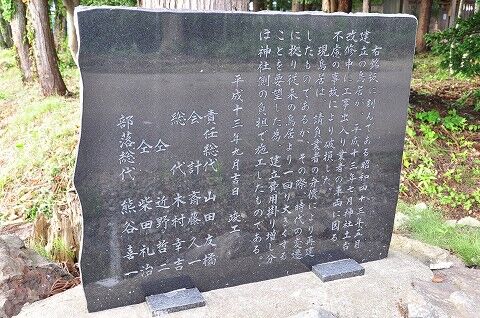 右銘板に刻んである昭和四十三年五月
建立の鳥居が、平成十三年七月神社土台
改修中に工事出入り業者の車両に因る
不慮の事故により破損した。
現鳥居は、請負業者の弁償により再建
したものであるが、その際、時代の変遷
に拠り従来の鳥居より一回り大きくする
ことを要望した為、建立費用掛り増し分
は神社側の負担で施工したものである。
平成十三年九月吉日 竣工
責任総代 山田友橘
会計 斎藤久一
総代 木村幸吉
仝 近野哲二
仝 柴田礼治
部落総代 熊谷喜一